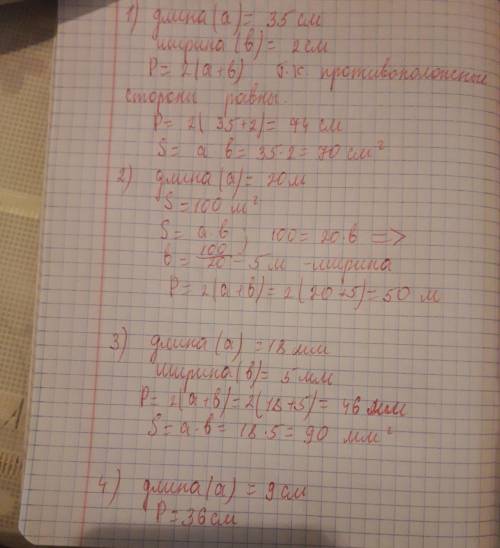 1) длина (а) = 35 см
ширина (в) = 2 см
Р = 2(а+в) т.к. противоположные
стороны равны.
Р = 2(35+2) = 94 см
S = а в = 35·2 = 70 см²
2) длина (а) = 20 м
S = 100 м²
S = а·в ; 100 = 20·в =>
в = 100/20 = 5 м - ширина
Р = 2(а+в) = 2(20+5) = 50 м
3) длина (а) = 18 мм
ширина (в) = 5 мм
Р = 2(а+в) = 2(18+5) = 46 мм
S = а·в = 18·5 = 90 мм²
4) длина (а) = 9 см
Р = 36 см